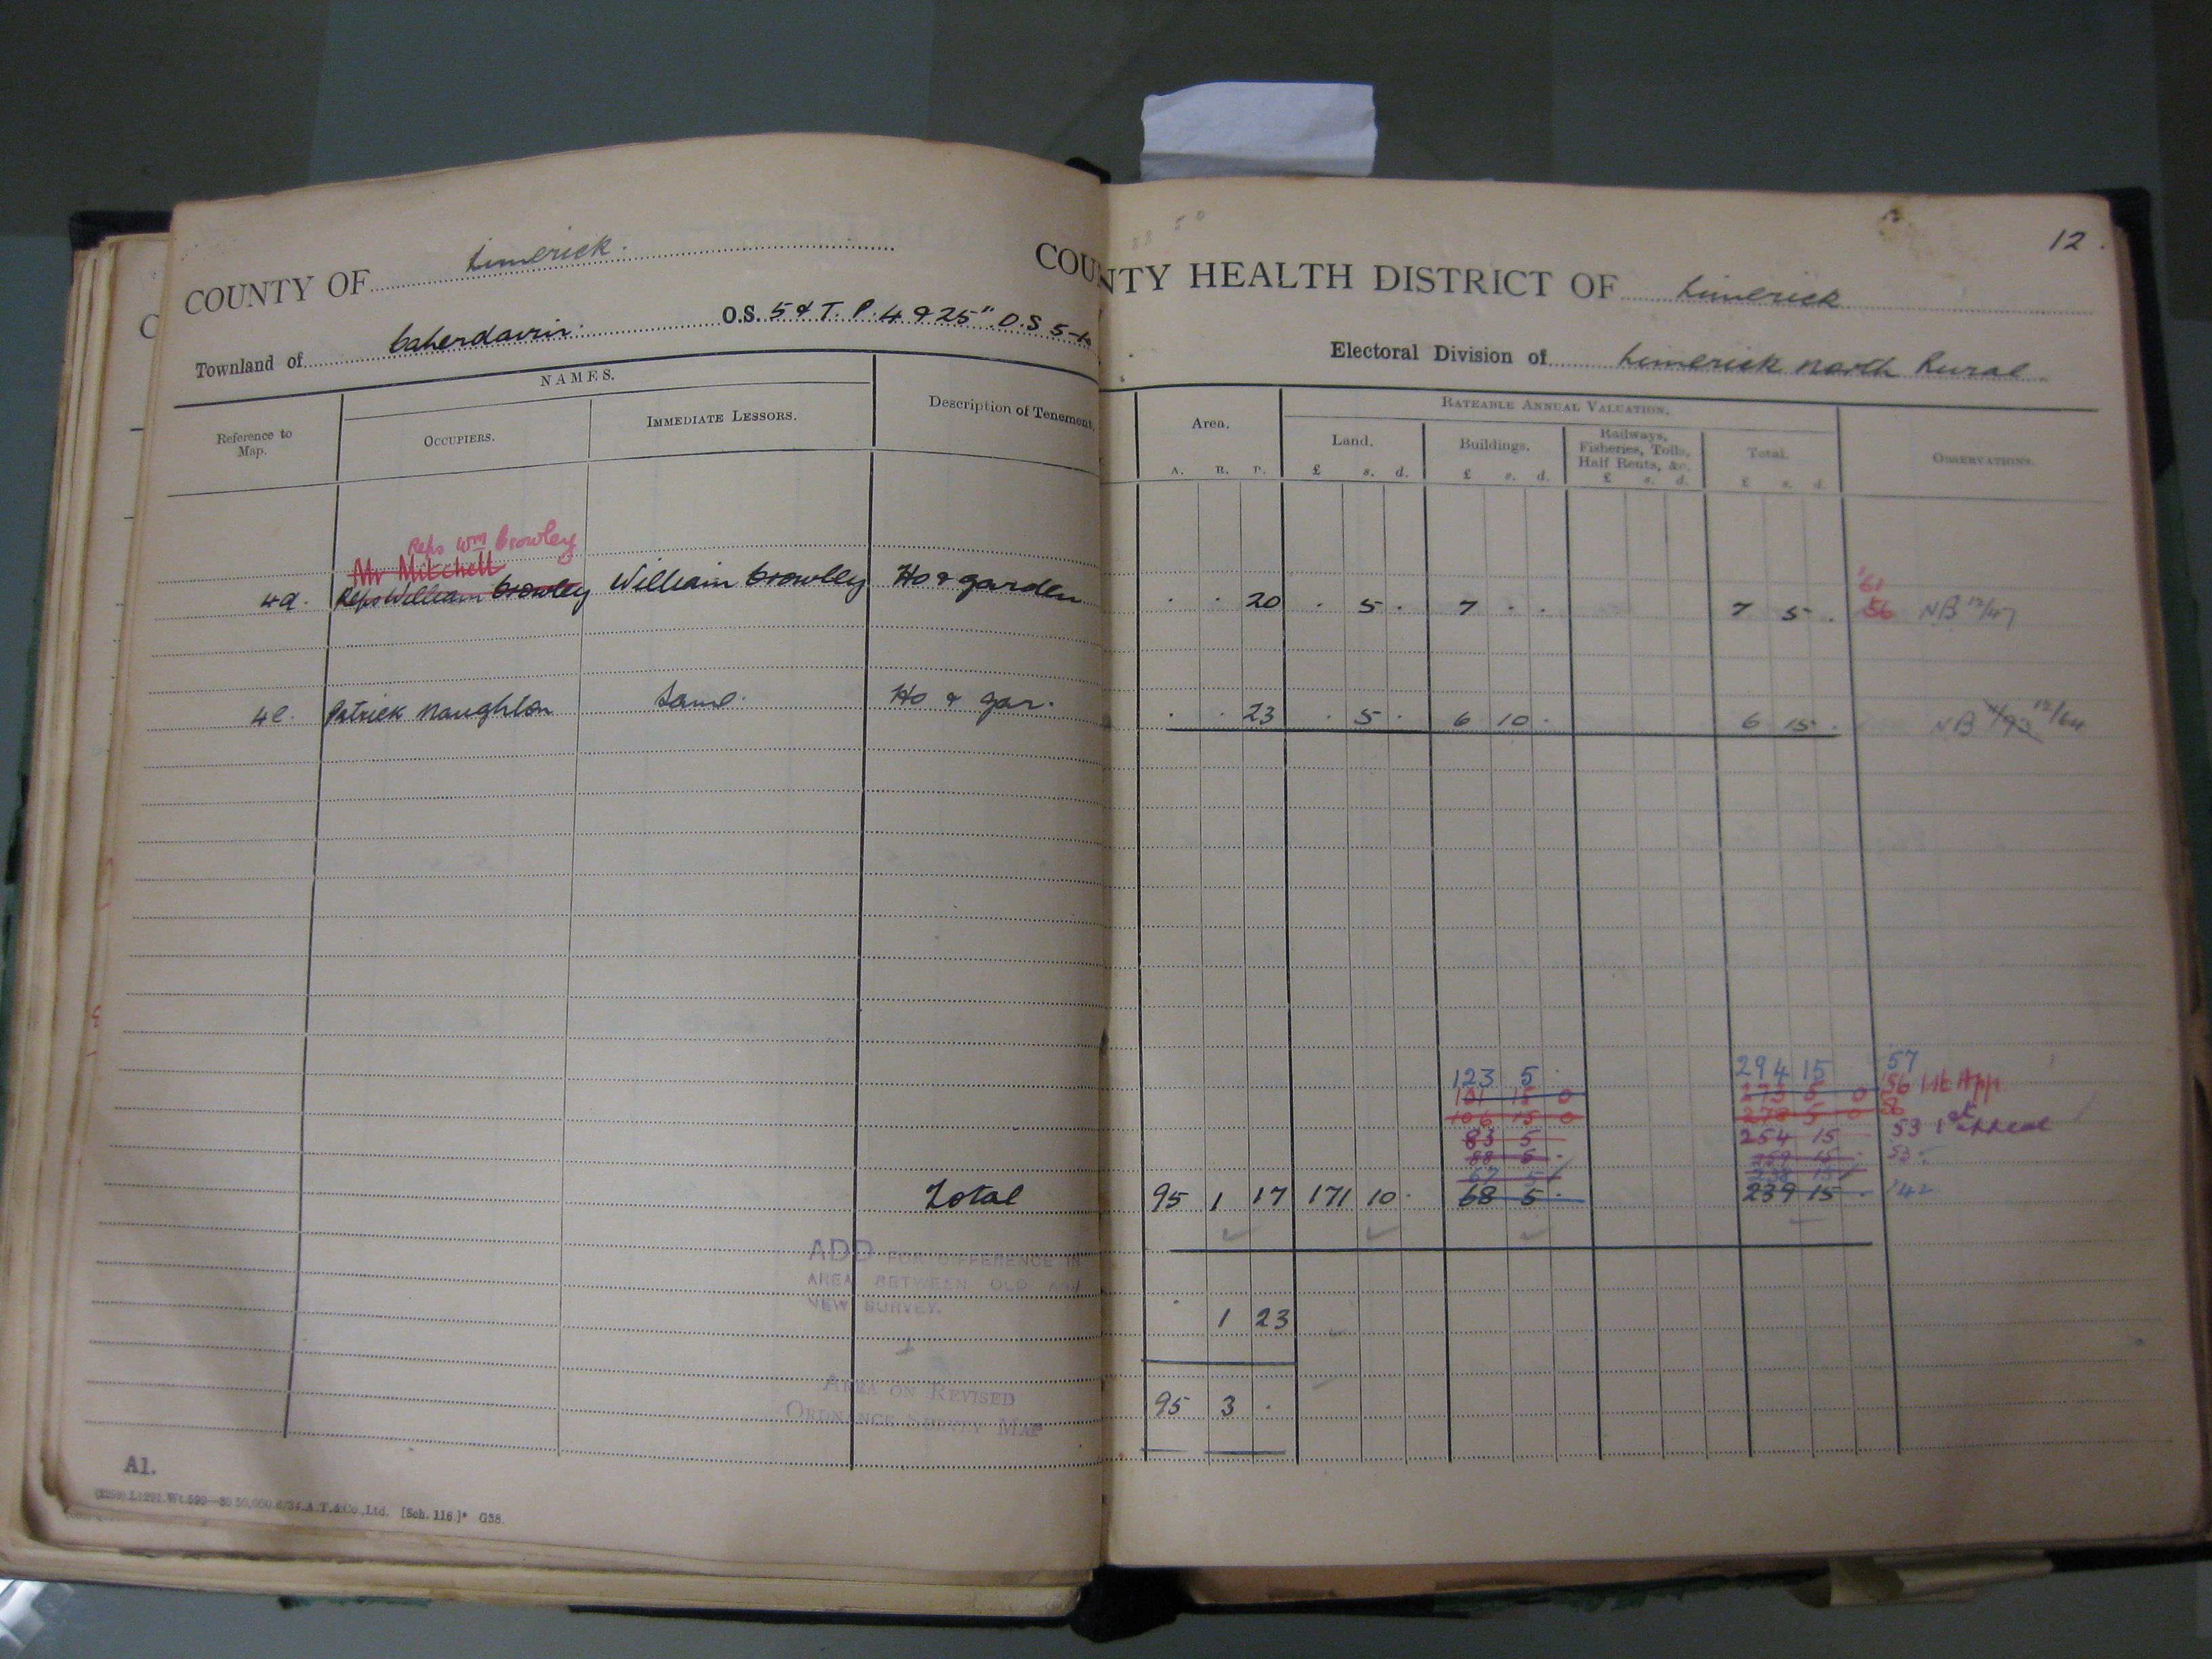 12.
COUNTY OF Limerick. COUNTY HEALTH DISTRICT OF Limerick
Townland of Caherdavin. O.S. 5 & T. P. 4 & 25". O.S 5-
Electoral Division of Limerick North Rural
NAMES.
Reference to Map.
OCCUPIERS.
IMMEDIATE LESSORS.
Description of Tenement.
Area.
A. R. P.
RATEABLE ANNUAL VALUATION.
Land.
£ s. d.
Buildings.
£ s. d.
Railways, Fisheries, Tolls, Half Rents, &c.
£ s. d.
Total.
£ s. d.
OBSERVATIONS.
Reps Wm Crowley
Mr Mitchell '61
4d. Reps William Crowley William Crowley Ho & garden . . 20 . 5 . 7 . . 7 5 . 56 NB 12/47
4e. Patrick Naughton Same. Ho & gar. . . 23 . 5 . 6 10 . 6 15 . NB 12/64
123 5 . 294 15 57
101 15 0 273 5 0 56 1st App
106 15 0 278 5 0 56
83 5 254 15 53 1st Appeal
88 5 . 259 15 . 53
67 5 238 15
Total 95 1 17 171 10 . 68 5 . 239 15 . '42
ADD FOR DIFFERENCE IN
AREA BETWEEN OLD AND
NEW SURVEY.
. 1 23
AREA ON REVISED
ORDNANCE SURVEY MAP
95 3 .
A1.
A.T.&Co.,Ltd. [Sch. 116]* G38.